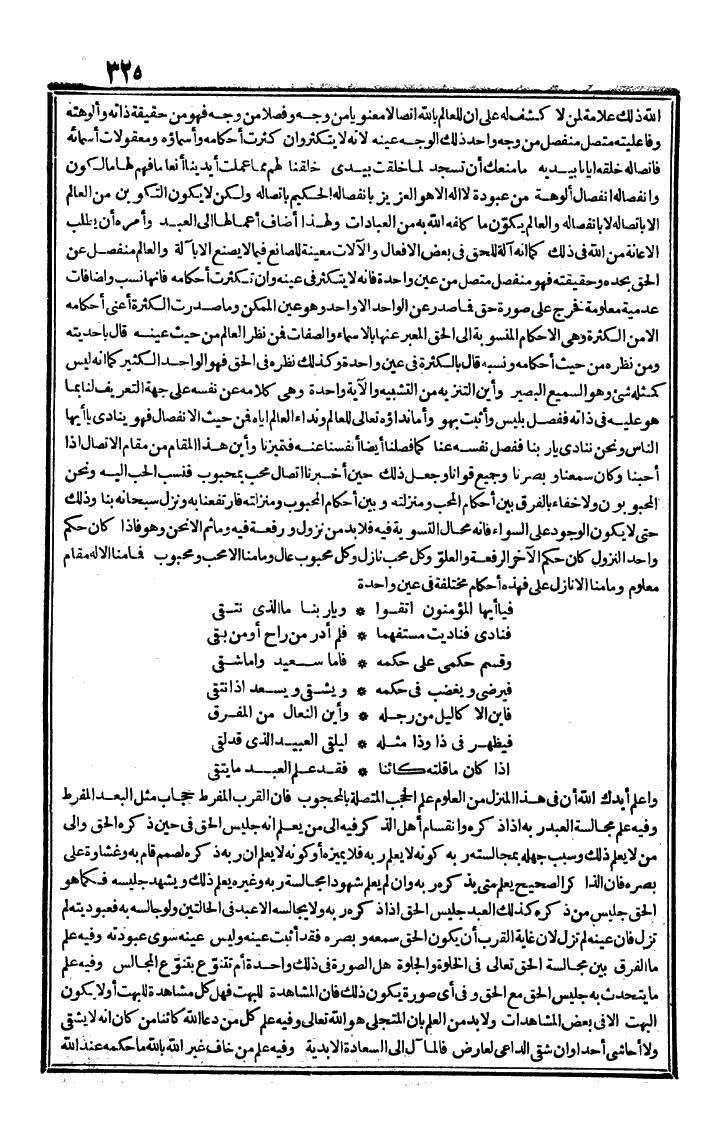 ٣٢٥
الله ذلك علامة لمن لا كشف له على ان للعالم بالله اتصالا معنويا من وجه وفصلا من وجه فهو من حقيقة ذاته وألوهته
وفاعليته متصل منفصل من وجه واحد ذلك الوجه عينه لانه لا يتكثر وان كثرت أحكامه وأسماؤه ومعقولات أسمائه
فاتصاله خلقه ايانا بيديه مامنعك أن تسجد لما خلقت بيدى خلقنا لهم مما عملت أيدينا أنعاما فهم لها مالكون
وانفصاله انفصال ألوهة من عبودة لا اله الا هو العزيز بانفصاله الحكيم باتصاله ولكن لا يكون التكوين من العالم
الا باتصاله لا بانفصاله والعالم يكوّن ما كلفه الله به من العبادات ولهذا أضاف أعمالها الى العبد وأمره أن يطلب
الاعانة من الله فى ذلك كما انه آلة للحق فى بعض الافعال والآلات معينة للصانع فيما لا يصنع الا بآلة والعالم منفصل عن
الحق بحده وحقيقته فهو منفصل متصل من عين واحدة فانه لا يتكثر فى عينه وان تكثرت أحكامه فانها نسب واضافات
عدمية معلومة فخرج على صورة حق فما صدر عن الواحد الا واحد وهو عين الممكن وما صدرت الكثرة أعنى أحكامه
الا من الكثرة وهى الاحكام المنسوبة الى الحق المعبر عنها بالاسماء والصفات فمن نظر العالم من حيث عينه قال باحديته
ومن نظره من حيث أحكامه ونسبه قال بالكثرة فى عين واحدة وكذلك نظره فى الحق فهو الواحد الكثير كما انه ليس
كمثله شئ وهو السميع البصير وأين التنزيه من التشبيه والآية واحدة وهى كلامه عن نفسه على جهة التعريف لنا بما
هو عليه فى ذاته ففصل بليس وأثبت بهو وأما نداؤه تعالى للعالم ونداء العالم اياه فمن حيث الانفصال فهو ينادى يا أيها
الناس ونحن ننادى يا ربنا ففصل نفسه عنا كما فصلنا أيضا أنفسنا عنه فتميزنا وأين هذا المقام من مقام الاتصال اذا
أحبنا وكان سمعنا وبصرنا وجميع قوانا وجعل ذلك حين أخبرنا اتصال محب بمحبوب فنسب الحب اليه ونحن
المحبوبون ولا خفاء بالفرق بين أحكام المحب ومنزلته وبين أحكام المحبوب ومنزلته فارتفعنا به ونزل سبحانه بنا وذلك
حتى لا يكون الوجود على السواء فانه محال التسوية فيه فلا بد من نزول ورفعة فيه وما ثم الا نحن وهو فاذا كان حكم
واحد النزول كان حكم الآخر الرفعة والعلوّ وكل محب نازل وكل محبوب عال وما منا الا محب ومحبوب فما منا الا له مقام
معلوم وما منا الا نازل على فهذه أحكام مختلفة فى عين واحدة
فيا أيها المؤمنون اتقوا * ويا ربنا ما الذى نتقى
فنادى فناديت مستفهما * فلم أدر من راح أو من بقى
وقسم حكمى على حكمه * فاما سعيد واما شقى
فيرضى ويغضب فى حكمه * ويشقى ويسعد اذا نتقى
فاين الاكاليل من رجله * وأين النعال من المفرق
فيظهر فى ذا وذا مثله * ليلقى العبيد الذى قد لقى
اذا كان ما قلته كائنا * فقد علم العبد ما يتقى
واعلم أيدك الله أن فى هذا المنزل من العلوم علم الحجب المتصلة بالمحجوب فان القرب المفرط حجاب مثل البعد المفرط
وفيه علم مجالسة العبد ربه اذا ذكره وانقسام أهل الذكر فيه الى من يعلم انه جليس الحق فى حين ذكره الحق والى
من لا يعلم ذلك وسبب جهله بمجالسته ربه كونه لا يعلم ربه فلا يميزه أو كونه لا يعلم ان ربه ذكره لصمم قام به وغشاوة على
بصره فان الذاكر الصحيح يعلم متى يذكره ربه وان لم يعلم شهودا مجالسة ربه وغيره يعلم ذلك ويشهد جليسه فكما هو
الحق جليس من ذكره كذلك العبد جليس الحق اذا ذكره ربه ولا يجالسه الا عبد فى الحالتين ولو جالسه به فعبوديته لم
تزل فان عينه لم تزل لان غاية القرب أن يكون الحق سمعه وبصره فقد أثبت عينه وليس عينه سوى عبودته وفيه علم
ما الفرق بين مجالسة الحق تعالى فى الخلوة والجلوة هل الصورة فى ذلك واحدة أم تتنوّع بتنوّع المجالس وفيه علم
ما يتحدث به جليس الحق مع الحق وفى أى صورة يكون ذلك فان المشاهدة للبهت فهل كل مشاهدة للبهت أو لا يكون
البهت الا فى بعض المشاهدات ولا بد من العلم بان المتجلى هو الله تعالى وفيه علم كل من دعا الله كائنا من كان انه لا يشقى
ولا أحاشى أحدا وان شقى الداعى لعارض فالمآل الى السعادة الابدية وفيه علم من خاف غير الله بالله ما حكمه عند الله